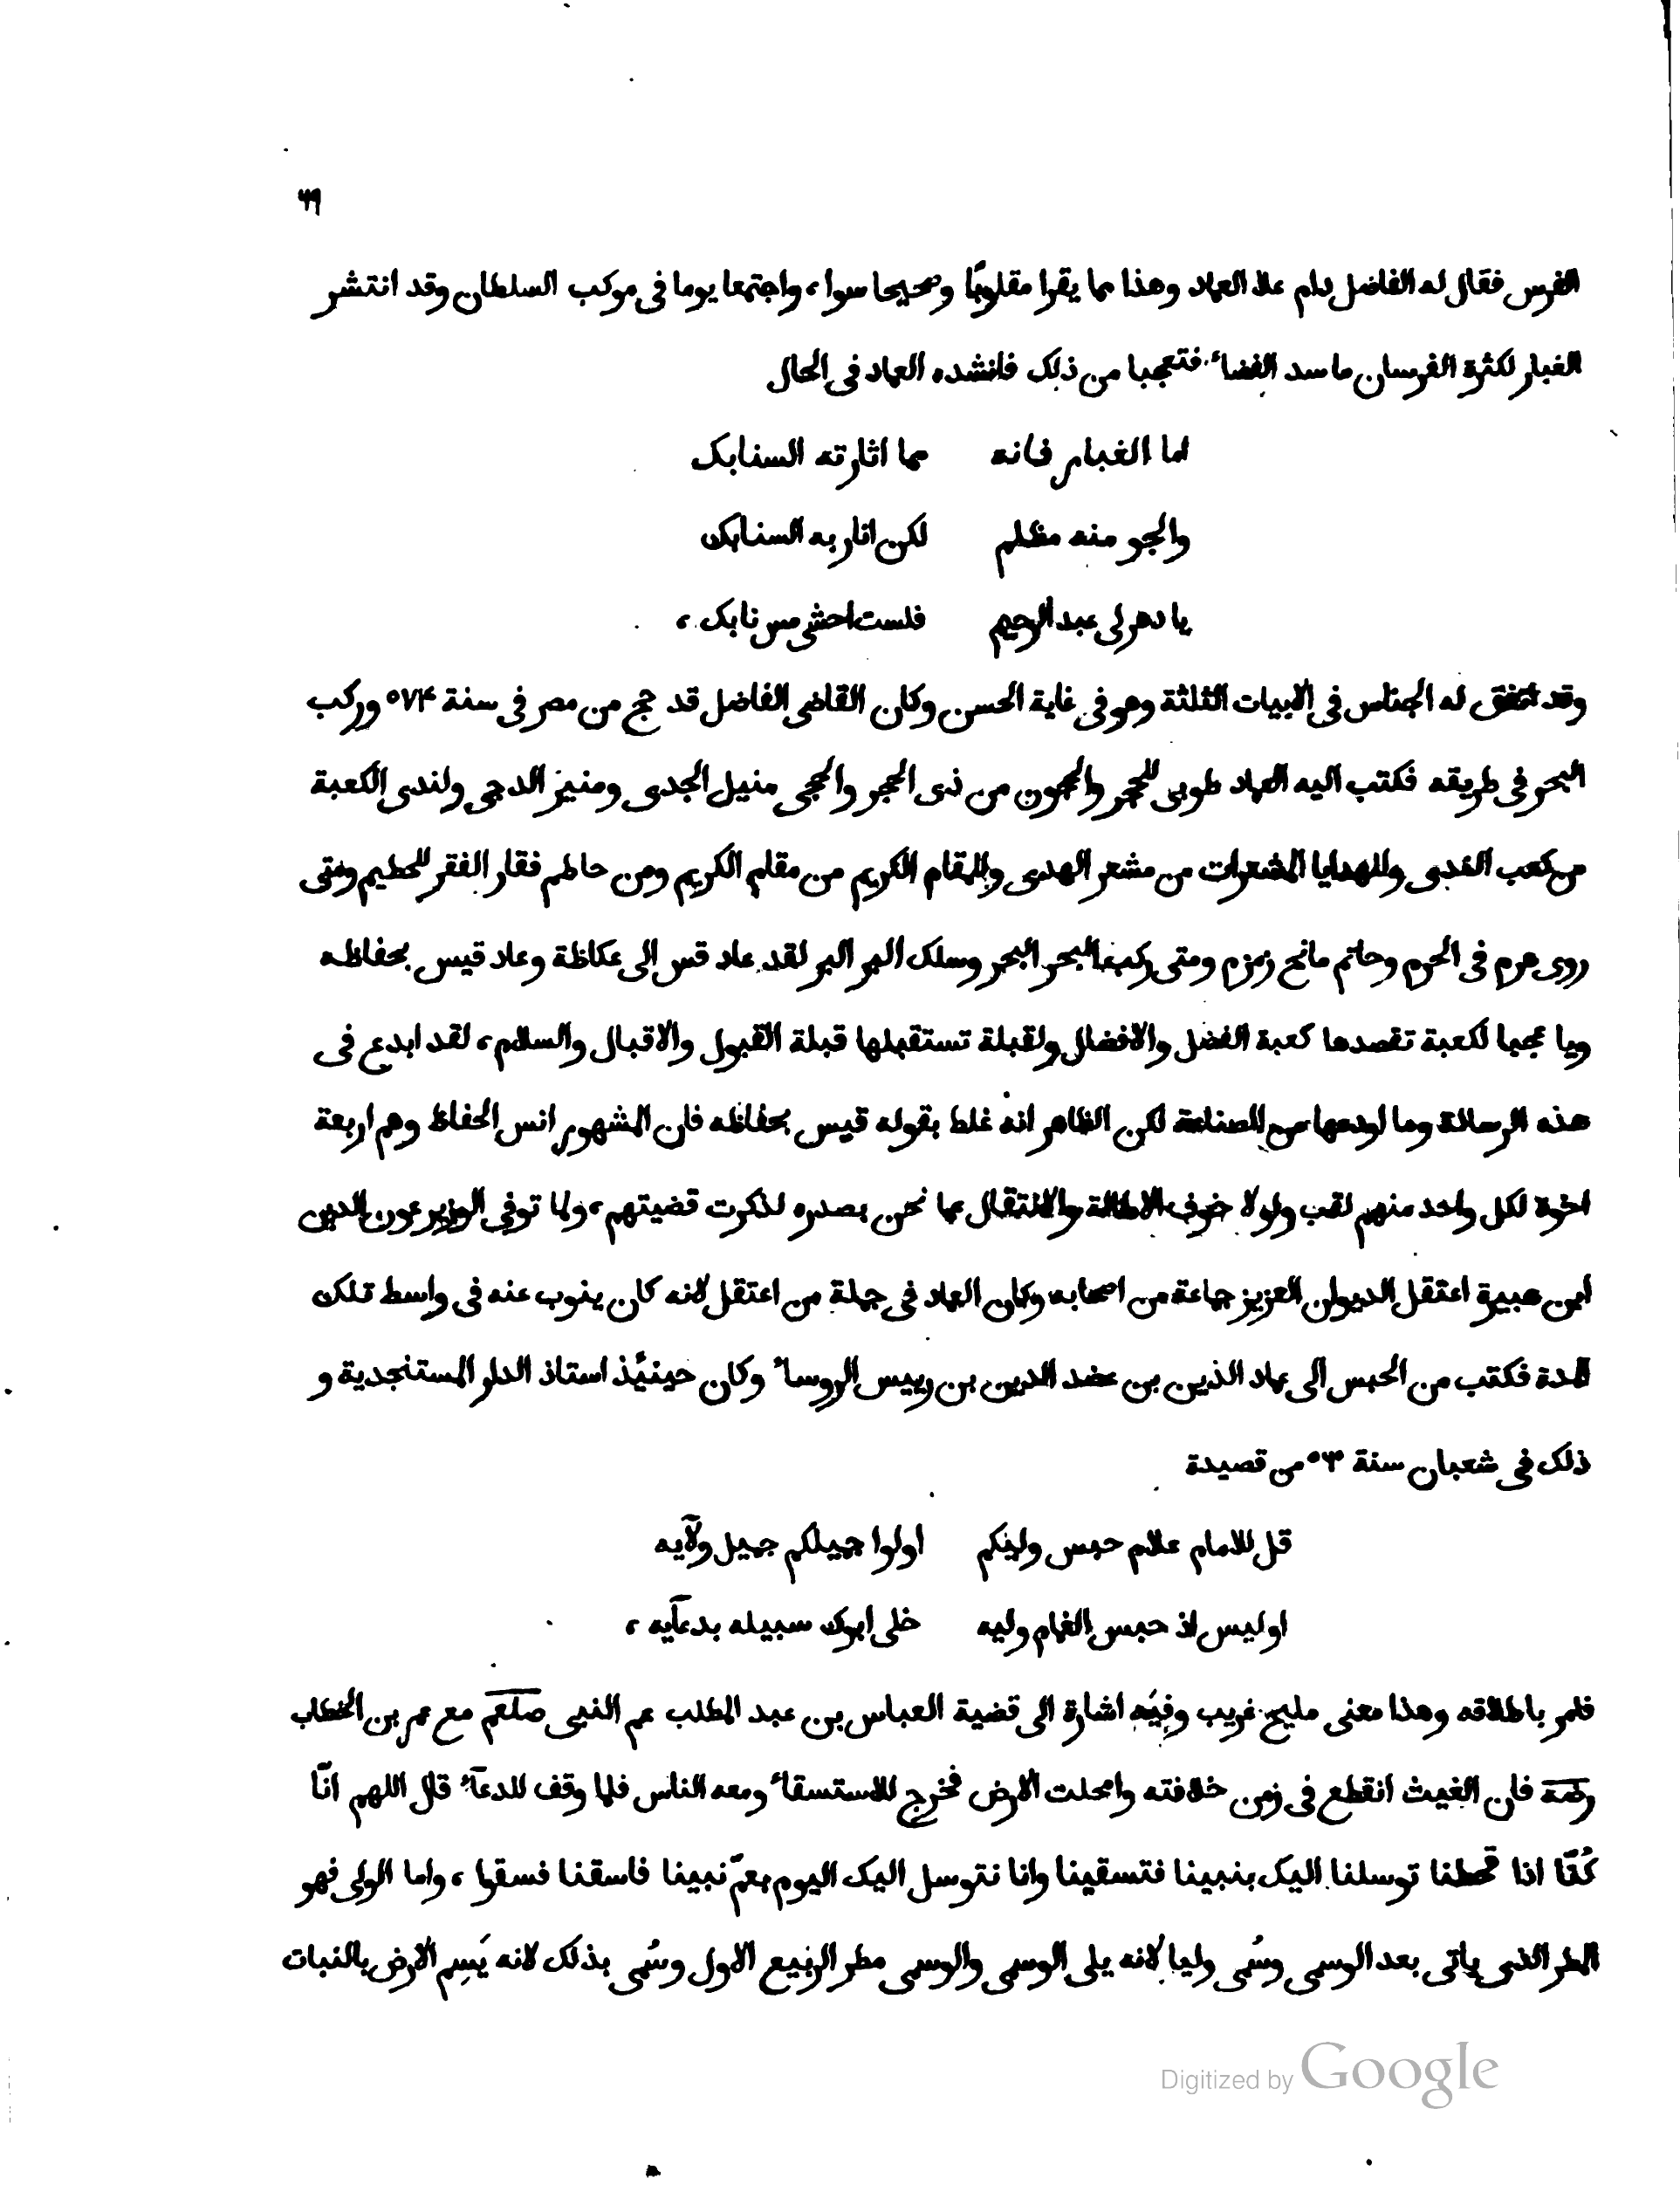 ٦٩
الفرس فقال له الفاضل دام علا العماد وهذا مما يقرا مقلوبًا وصحيحا سوا، واجتمعا يوما فى موكب السلطان وقد انتشر
الغبار لكثرة الفرسان ما سد الفضاء فتعجبا من ذلك فانشده العماد فى الحال
اما الغبار فانه مما اثارته السنابك
والجو منه مظلم لكن انار به السنابك
يا دهر لى عبد الرحيم فلست اخشى مس نابك،
وقد اتفق له الجناس فى الابيات الثلثة وهو فى غاية الحسن وكان القاضى الفاضل قد حج من مصر فى سنة ٥٧٤ وركب
البحر فى طريقه فكتب اليه العماد طوبى للحجر والحجون من ذى الحجر والحجى منيل الجدى ومنير الدجى ولندى الكعبة
من كعب الندى وللهدايا المشعرات من مشعر الهدى وللمقام الكريم من مقام الكريم ومن حاطم فقار الفقر للحطيم ومتى
روى هرم فى الحرم وحاتم مانح زمزم ومتى ركب البحر البحر وسلك البر البر لقد عاد قس الى عكاظة وعاد قيس بحفاظه
ويا عجبا لكعبة تقصدها كعبة الفضل والافضال ولقبلة تستقبلها قبلة القبول والاقبال والسلام، لقد ابدع فى
هذه الرسالة وما اودعها من الصناعة لكن الظاهر انه غلط بقوله قيس بحفاظه فان المشهور انس الحفاظ وهم اربعة
اخوة لكل واحد منهم لقب ولولا خوف الاطالة والانتقال عما نحن بصدده لذكرت قضيتهم، ولما توفى الوزير عون الدين
ابن هبيرة اعتقل الديوان العزيز جماعة من اصحابه وكان العماد فى جملة من اعتقل لانه كان ينوب عنه فى واسط تلك
المدة فكتب من الحبس الى عماد الذين بن عضد الدين بن رييس الروسا وكان حينئذ استاذ الدار المستنجدية و
ذلك فى شعبان سنة ٥٦٠ من قصيدة
قل للامام علام حبس وليكم اولوا جميلكم جميل ولآيه
اوليس اذ حبس الغمام وليه خلى ابوك سبيله بدعآيه،
فامر باطلاقه وهذا معنى مليح غريب وفيه اشارة الى قضية العباس بن عبد المطلب عم النبى صلعم مع عمر بن الخطاب
رضه فان الغيث انقطع فى زمن خلافته وامحلت الارض فخرج للاستسقاء ومعه الناس فلما وقف للدعآء قال اللهم انّا
كُنّا اذا قحطنا توسلنا اليك بنبينا فتسقينا وانا نتوسل اليك اليوم بعمّ نبينا فاسقنا فسقوا، واما الولى فهو
المطر الذى ياتى بعد الوسمى وسُمى وليا لانه يلى الوسمى والوسمى مطر الربيع الاول وسُمى بذلك لانه يَسِم الارض بالنبات
Digitized by Google